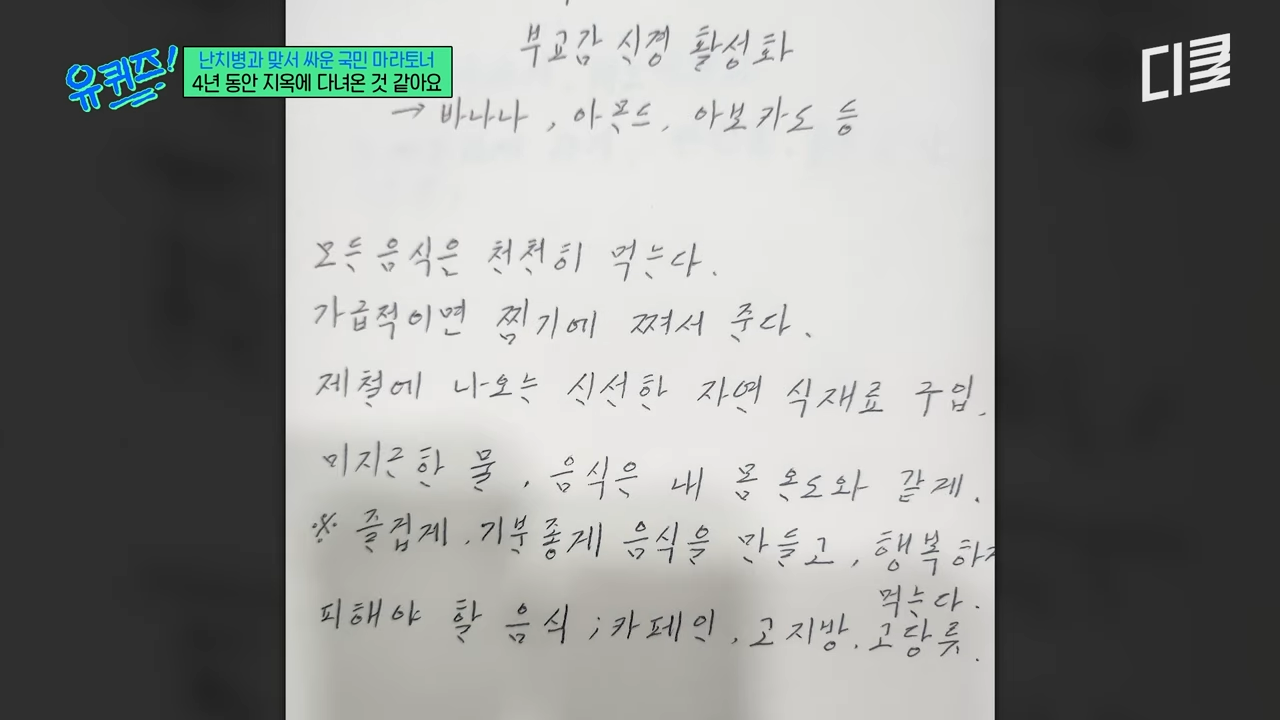 유퀴즈!
난치병과 맞서 싸운 국민 마라토너
4년 동안 지옥에 다녀온 것 같아요
디클
부교감 신경 활성화
→ 바나나, 아몬드, 아보카도 등
모든 음식은 천천히 먹는다.
가급적이면 찜기에 쪄서 준다.
제철에 나오는 신선한 자연 식재료 구입.
미지근한 물, 음식은 내 몸 온도와 같게.
※ 즐겁게, 기분좋게 음식을 만들고, 행복하게
먹는다.
피해야 할 음식 ; 카페인, 고지방, 고당류.